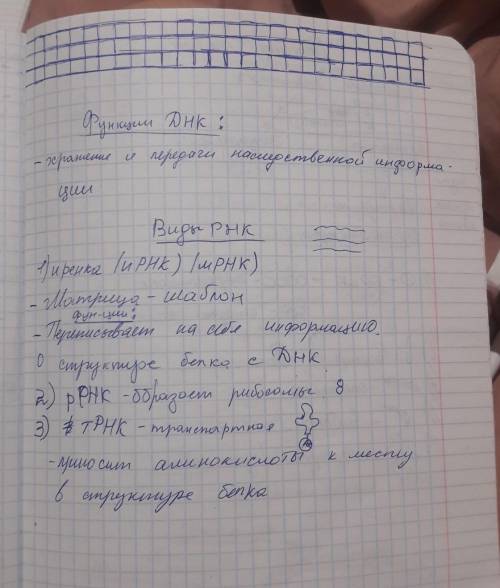 Функции ДНК:
- хранение и передачи наследственной информа-
ции
Виды РНК
1) иренка (иРНК) (мРНК)
- Матрица - шаблон
функции:
- Переписывает на себя информацию.
О структуре белка с ДНК
2) рРНК - образает рибосомы 8
3) тРНК - транспортная
- приносит аминокислоты к месту
в структуре белка